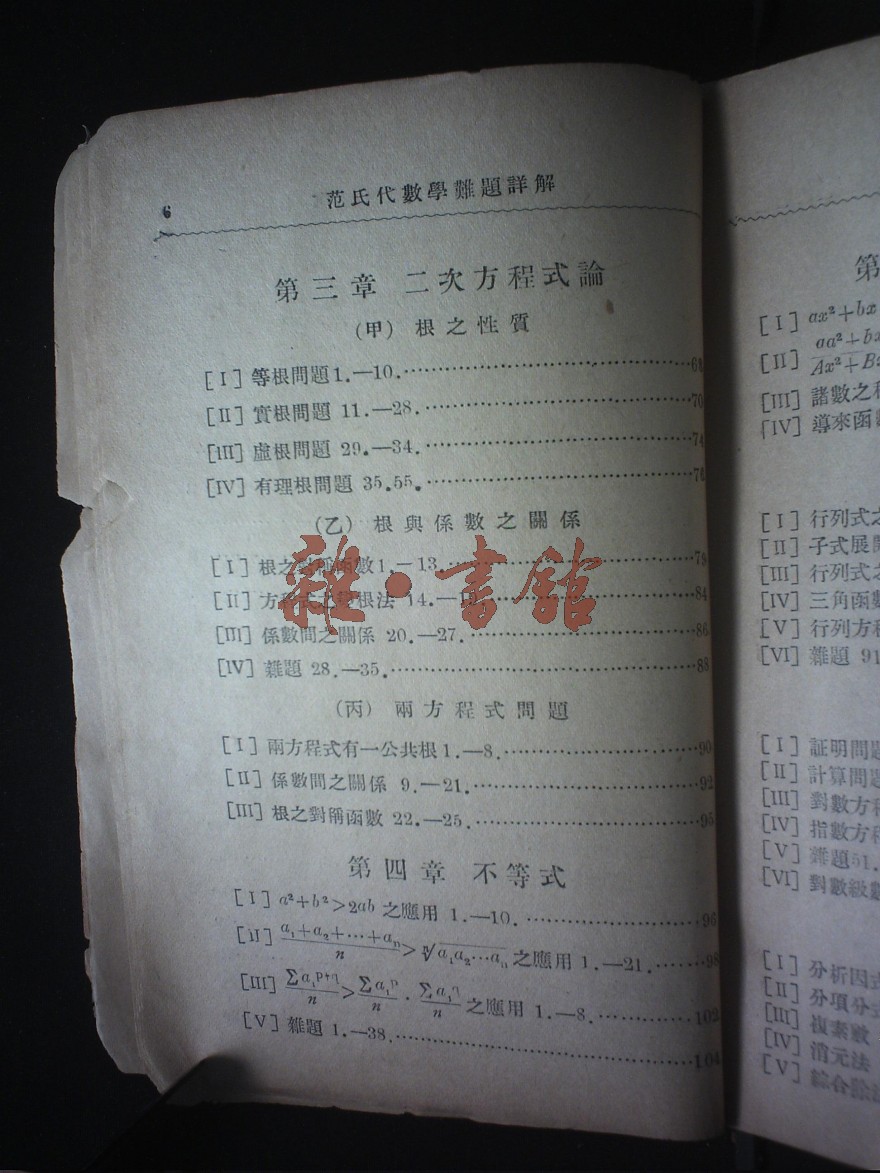 6
范氏代數學難題詳解
第三章 二次方程式論
(甲) 根之性質
[I] 等根問題 1.—10.
[II] 實根問題 11.—28. 70
[III] 虛根問題 29.—34. 74
[IV] 有理根問題 35.55. 76
(乙) 根與係數之關係
[I] 根之對稱函數 1.—13. 79
[II] 方程式之 根法 14.— 84
[III] 係數間之關係 20.—27. 86
[IV] 雜題 28.—35. 88
雜·書館
(丙) 兩方程式問題
[I] 兩方程式有一公共根 1.—8. 90
[II] 係數間之關係 9.—21. 92
[III] 根之對稱函數 22.—25. 95
第四章 不等式
[I] a²+b²>2ab 之應用 1.—10. 96
[II] (a₁+a₂+⋯+aₙ)/n > ⁿ√(a₁a₂⋯aₙ) 之應用 1.—21. 98
[III] Σa₁ᵖ⁺ᑫ/n > Σa₁ᵖ/n · Σa₁ᑫ/n 之應用 1.—8. 102
[V] 雜題 1.—38. 104
第
[I] ax²+bx
[II] aa²+bx / Ax²+Bx
[III] 諸數之
[IV] 導來函
[I] 行列式之
[II] 子式展開
[III] 行列式之
[IV] 三角函數
[V] 行列方程
[VI] 雜題 91
[I] 証明問題
[II] 計算問題
[III] 對數方程
[IV] 指數方程
[V] 雜題 51.
[VI] 對數級數
[I] 分析因式
[II] 分項分式
[III] 複素數
[IV] 消元法
[V] 綜合除法